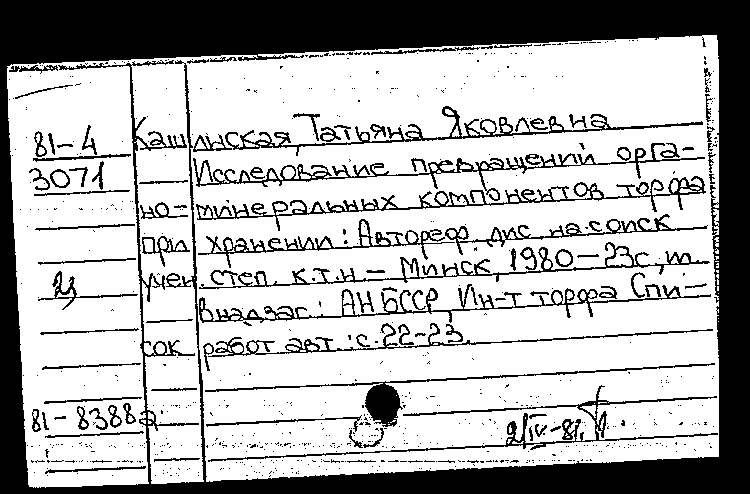 81-4
3071
Кашинская, Татьяна Яковлевна
Исследование превращений орга-
но-минеральных компонентов торфа
при хранении: Автореф. дис. на соиск
учен. степ. к.т.н. - Минск, 1980 - 23с.,
В надзаг.: АН БССР, Ин-т торфа Спи-
сок работ авт.: с. 22-23.
81-8388а
2/IV-81.